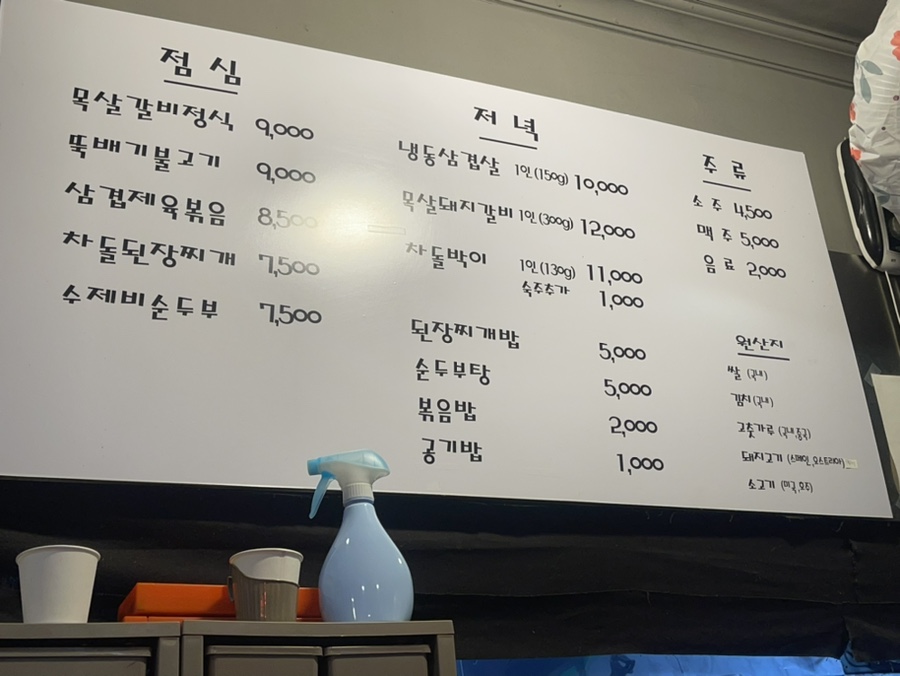 점심
목살갈비정식 9,000
뚝배기불고기 9,000
삼겹제육볶음 8,500
차돌된장찌개 7,500
수제비순두부 7,500
저녁
냉동삼겹살 1인(150g) 10,000
목살돼지갈비 1인(300g) 12,000
차돌박이 1인(130g) 11,000
숙주추가 1,000
된장찌개밥 5,000
순두부탕 5,000
볶음밥 2,000
공기밥 1,000
주류
소주 4,500
맥주 5,000
음료 2,000
원산지
쌀 (국내)
김치 (국내)
고춧가루 (국내,중국)
돼지고기 (스페인,오스트리아)
소고기 (미국,호주)